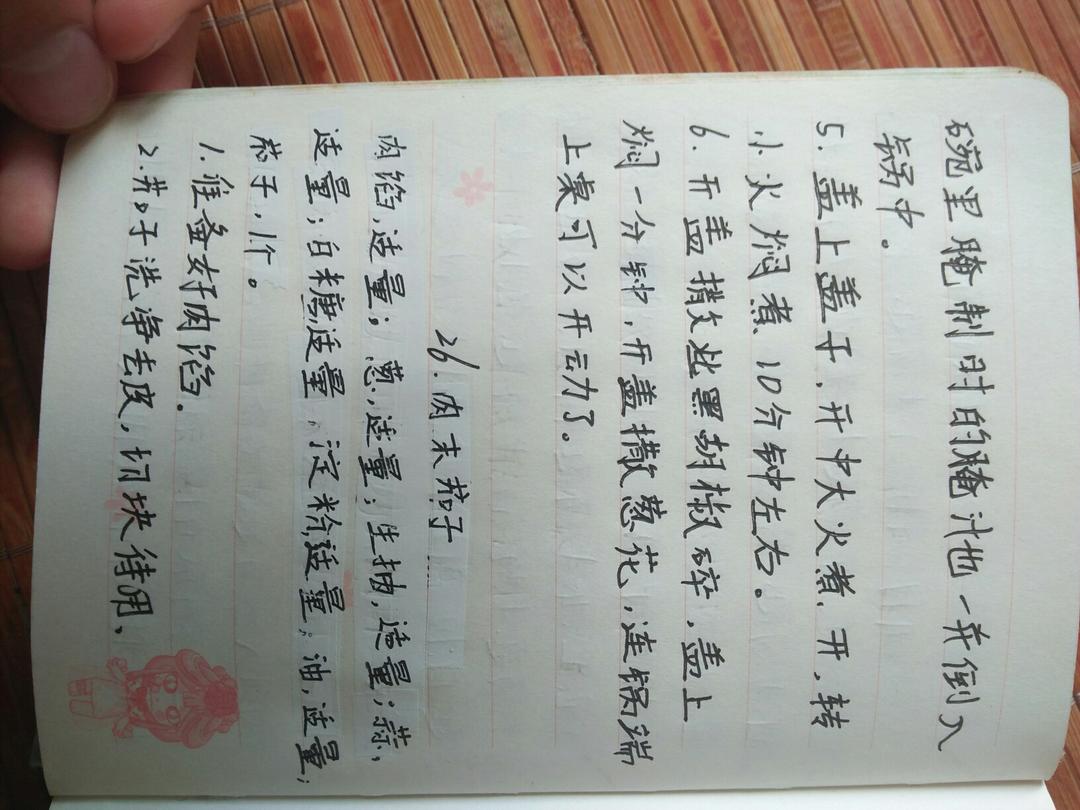 碗里腌制时的腌汁也一并倒入
锅中。
5.盖上盖子,开中大火煮开,转
小火焖煮10分钟左右。
6.开盖撒些黑胡椒碎,盖上
焖一分钟,开盖撒葱花,连锅端
上桌可以开动了。
26.肉末茄子
肉馅,适量;葱,适量;生抽,适量;蒜,
适量;白糖适量,淀粉适量;油,适量;
茄子,1个。
1.准备好肉馅。
2.茄子洗净去皮,切块待用、